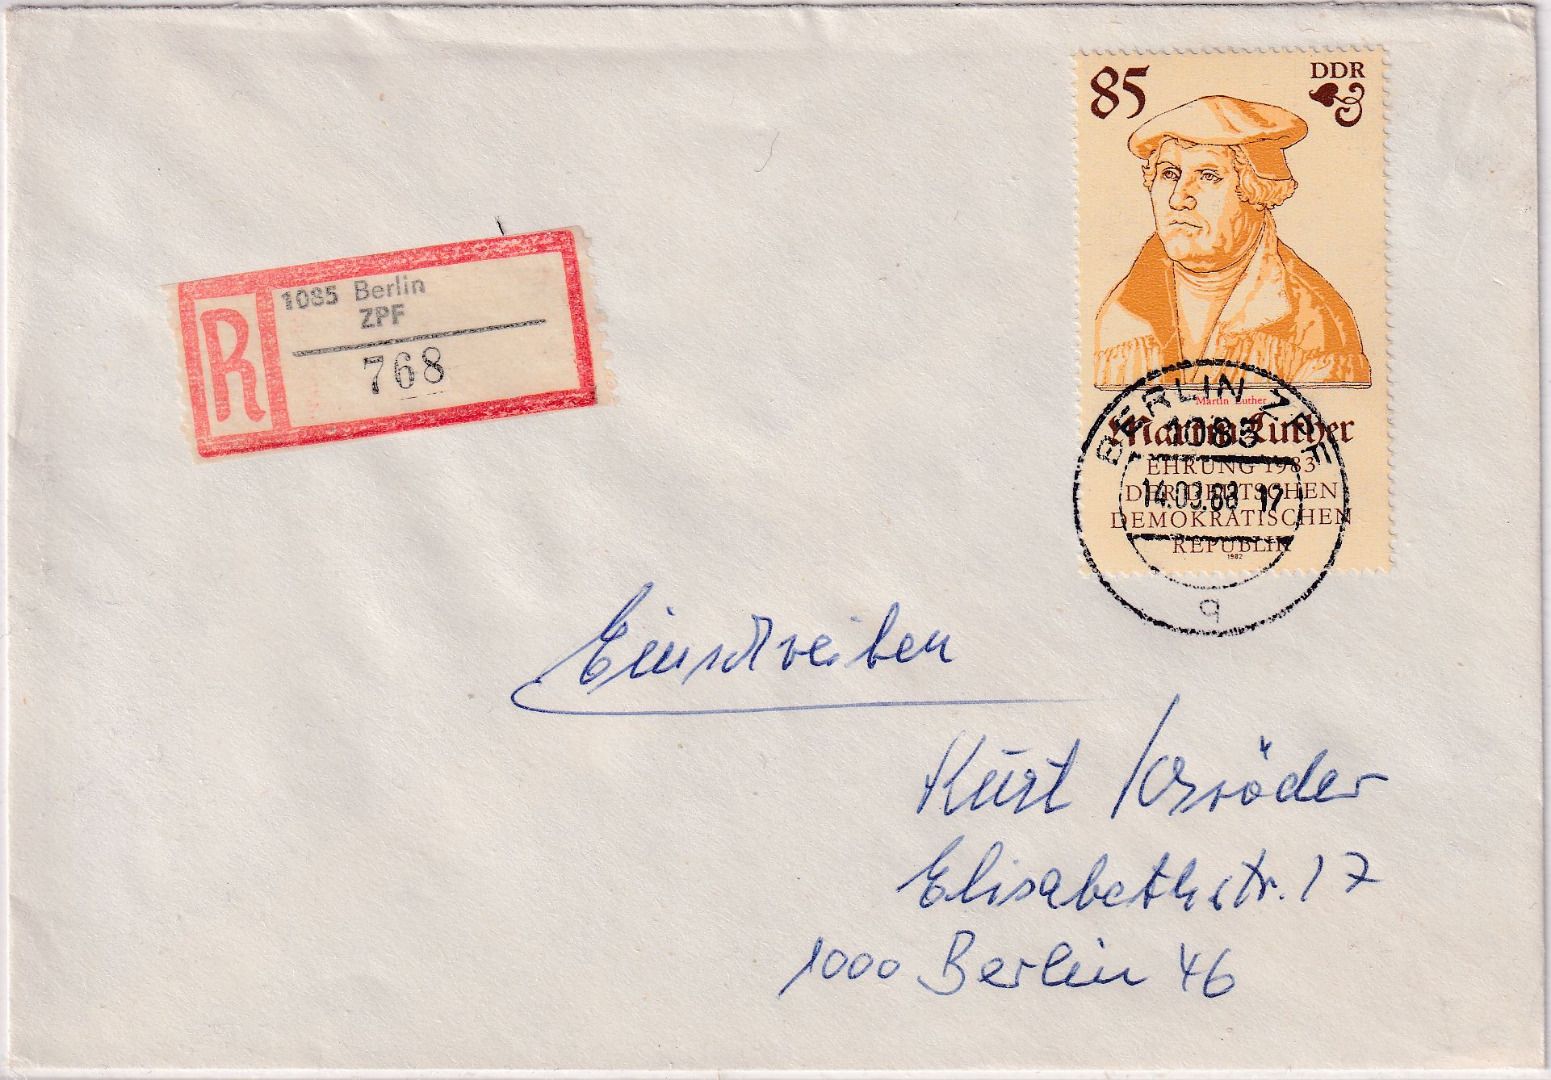 85
DDR
1085 Berlin
ZPF
R
768
Martin Luther
Martin Luther
EHRUNG 1983
DER DEUTSCHEN
DEMOKRATISCHEN
REPUBLIK
1982
BERLIN ZPF
1085
14.03.88 17
q
Einschreiben
Kurt
Elisabethstr. 17
1000 Berlin 46